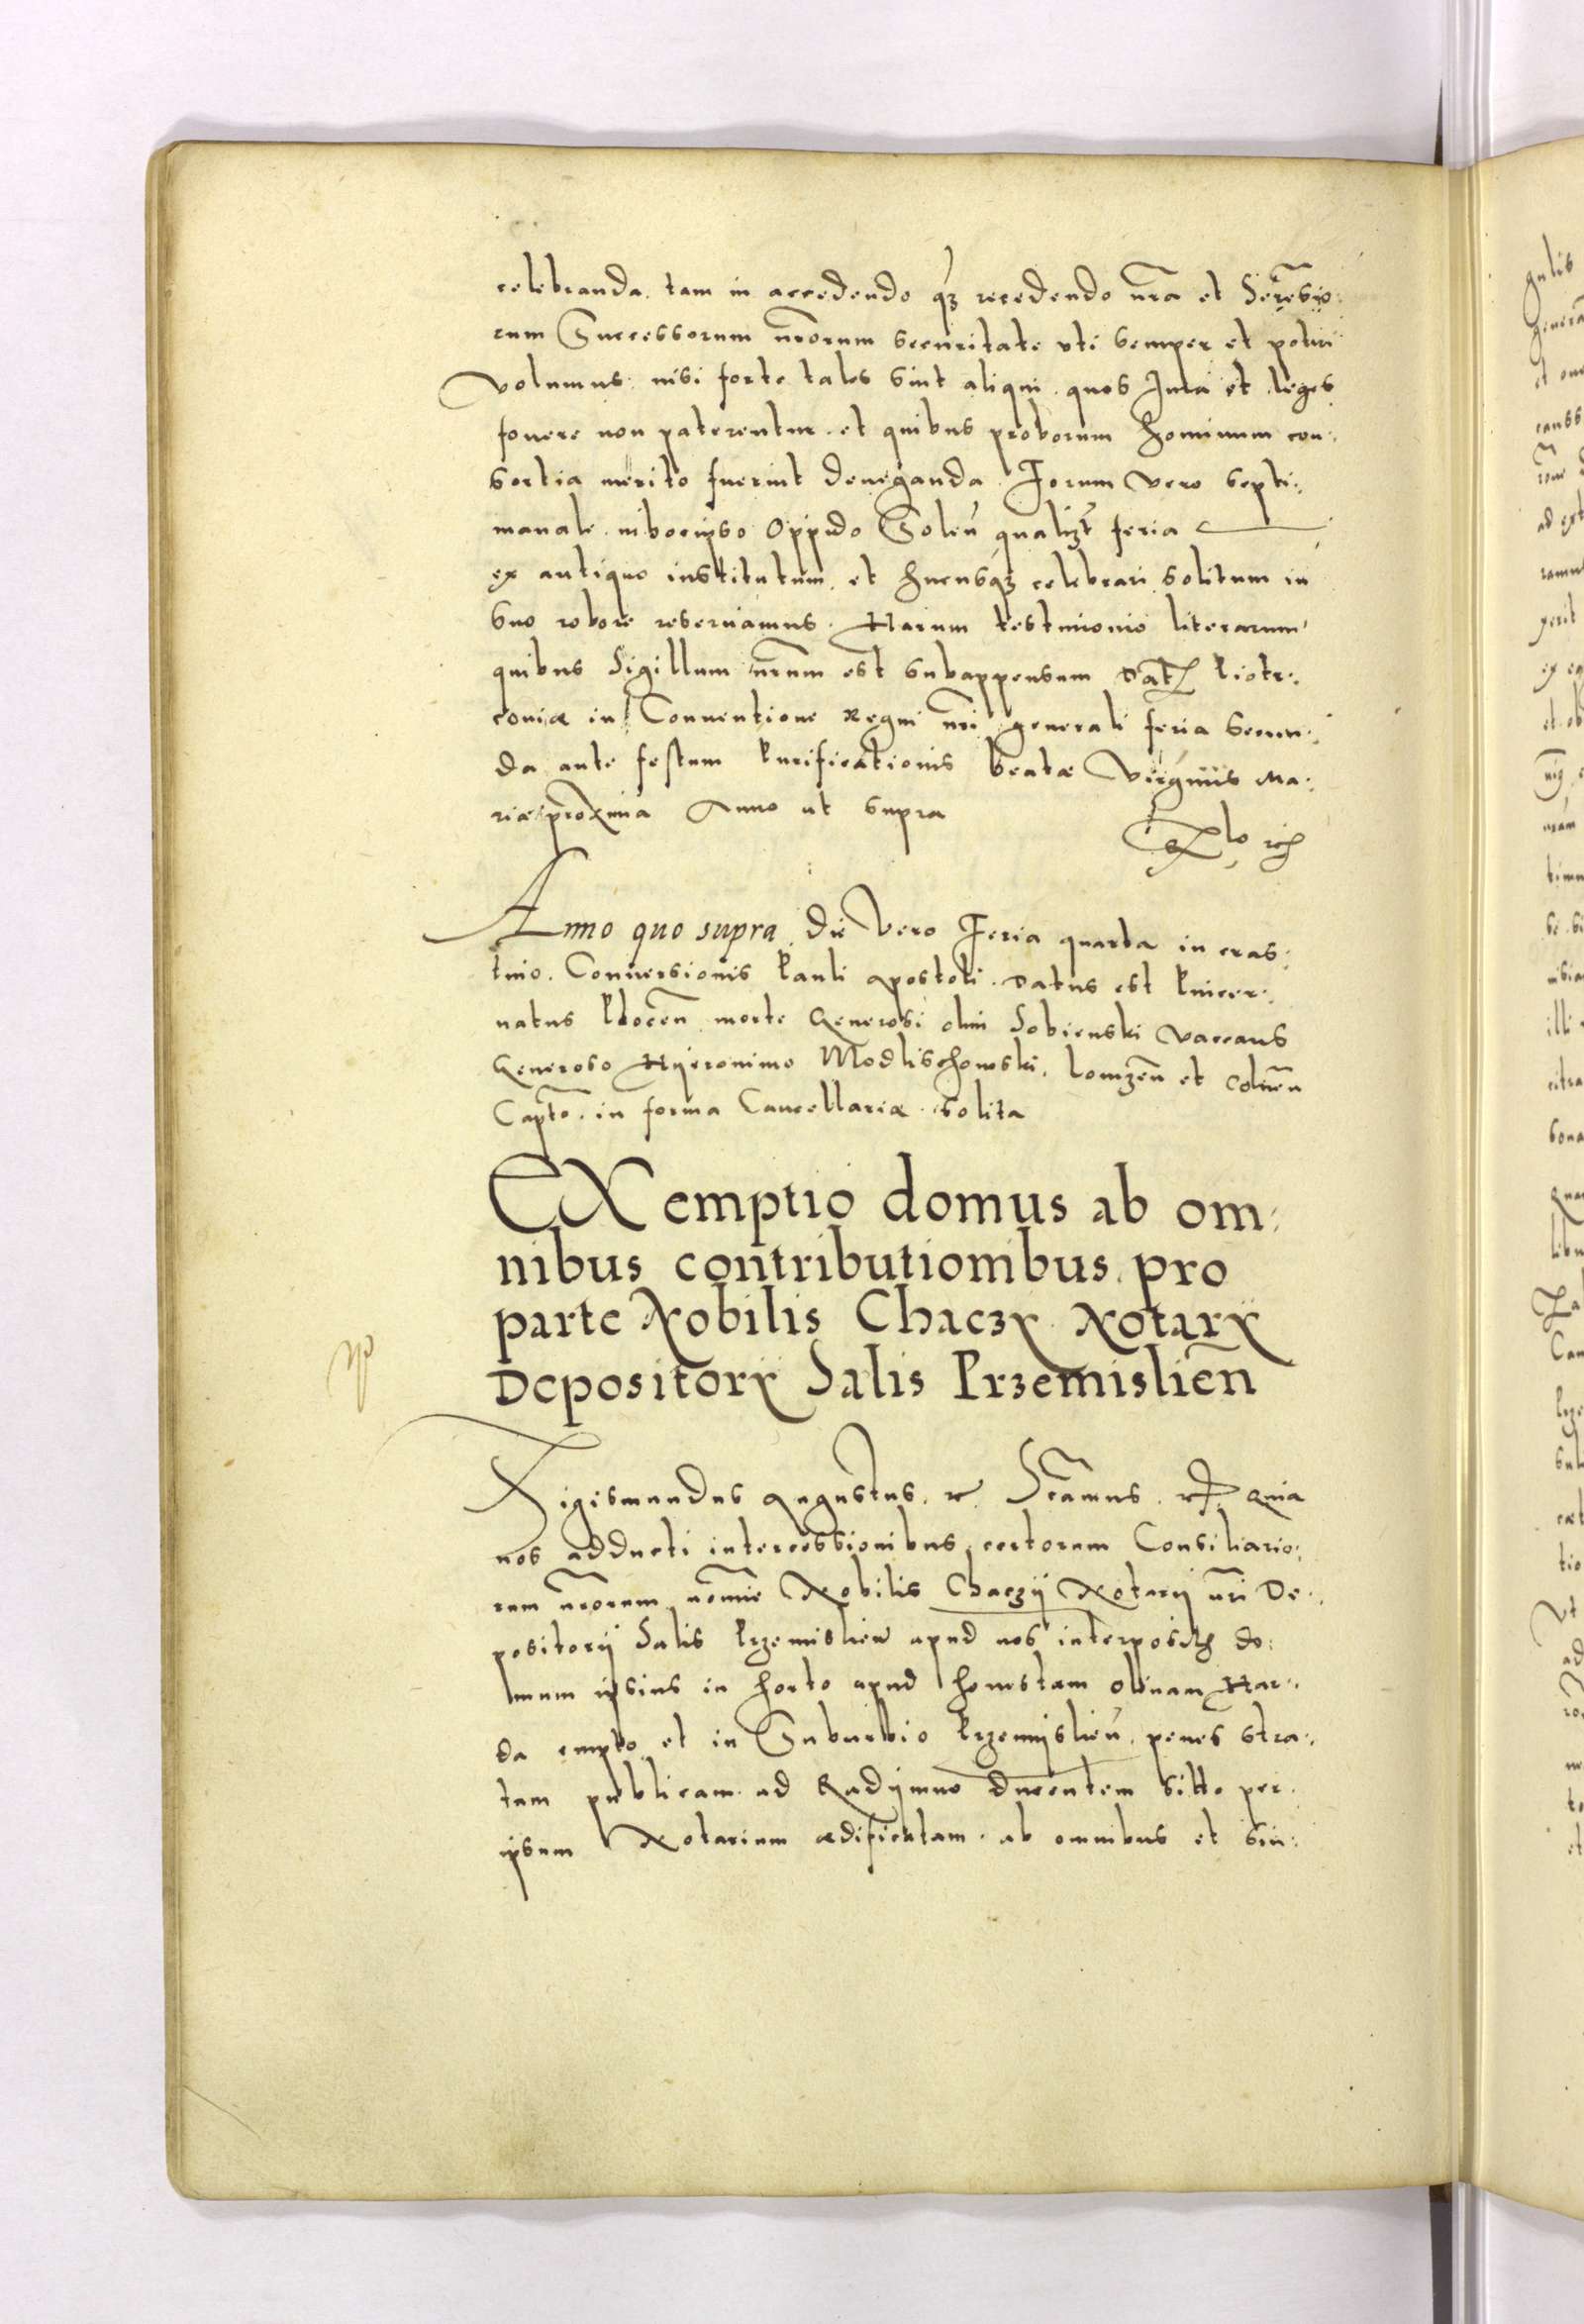 celebranda. tam in accedendo q3 recedendo nra et Seresio:
rum Successorum nrorum securitate vti semper et potiri
volumus: nisi forte tales sint aliqui. quos Iura et leges
fovere non paterentur. et quibus proborum hominum con:
sortia merito fuerint deneganda. Forum vero septi:
manale. in hocipso Oppido Solen qualizt feria
ex antiquo institutum. et hucusq3 celebrari solitum in
suo robore reservamus. Harum testimonio literarum
quibus Sigillum nrum est subappensum Dat Piotr:
coviæ in Conventione Regni nri generali feria secun:
da ante festum Purificationis beatæ Virginis Ma:
riæ proxima Anno ut supra

Anno quo supra. Die Vero Feria quarta in cras:
tino. Conversionis Pauli apostoli. Datus est Pincer:
natus Plocen morte Generosi olim Sobienski vaccans
Generoso Hyeronimo Modlischowski. Lomzen et Colnen
Capto. in forma Cancellariæ solita
EXemptio domus ab om:
nibus contributionibus pro
parte Nobilis Chaczy Notarÿ
Depositorÿ Salis Przemislien
Sigismundus Augustus. rc Scamus. rc Quia
nos adducti intercessionibus certorum Consiliario:
rum nrorum nomine Nobilis Chaczÿ Notarÿ nri De:
positorÿ Salis Przemislien apud nos interpositis do:
mum ipsius in horto apud honestam olinam Har:
da empto et in Suburbio Przemÿslien. penes stra:
tam publicam ad Radÿmno ducentem sitto per
ipsum Notarium ædificatam. ab omnibus et sin: